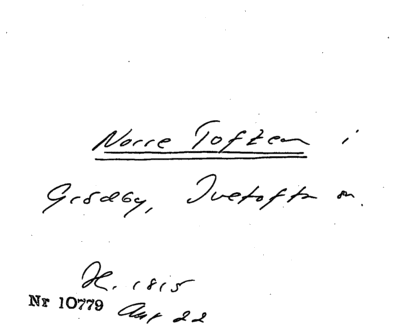 Norre Toften i
Grödby, Ivetofta sn.
H. 1815
Nr 10779 Akt 22